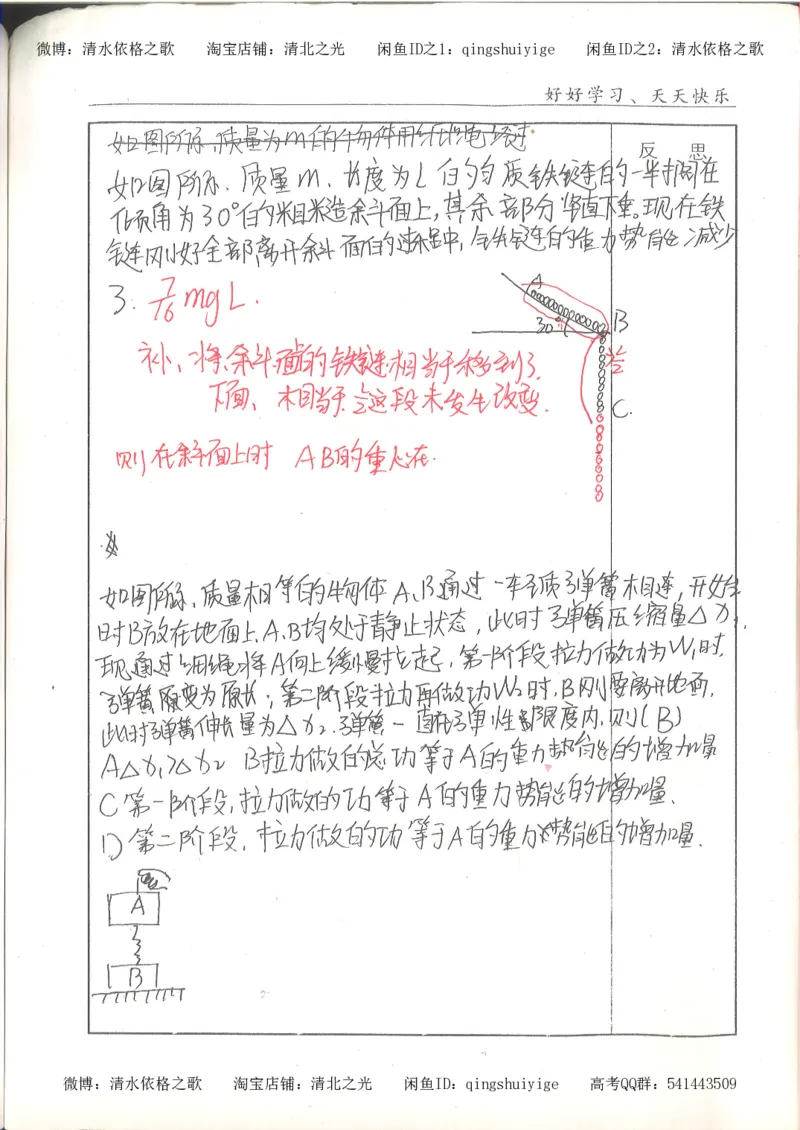 微博：清水依格之歌 淘宝店铺：清北之光 闲鱼ID之1：qingshuiyige 闲鱼ID之2：清水依格之歌
好好学习、天天快乐
反思
如图所示、质量m、长度为L的匀质铁链的一半搁在
倾角为30°的粗糙斜面上，其余部分竖直下垂。现在铁
链刚好全部离开斜面的过程中，铁链的重力势能减少
3. 7/16 mgL.
A
30°
B
C.
补、将斜面的铁链相当于移到了
下面、相当于 这段未发生改变.
则在斜面上时 AB的重心在.
如图所示、质量相等的物体A、B通过一轻质弹簧相连，开始
时B放在地面上、A、B均处于静止状态，此时弹簧压缩量△x1.
现通过细绳将A向上缓慢拉起，第一阶段拉力做功为W1时，
弹簧 变为原长；第二阶段拉力再做功W2时，B刚要离开地面，
此时弹簧伸长量为△x2. 弹簧一直在弹性限度内，则(B)
A△x1>△x2 B拉力做的总功等于A的重力势能的增加量
C第一阶段，拉力做的功等于A的重力势能的增加量、
D第二阶段，拉力做的功等于A的重力势能的增加量.
A
B
微博：清水依格之歌 淘宝店铺：清北之光 闲鱼ID：qingshuiyige 高考QQ群：541443509